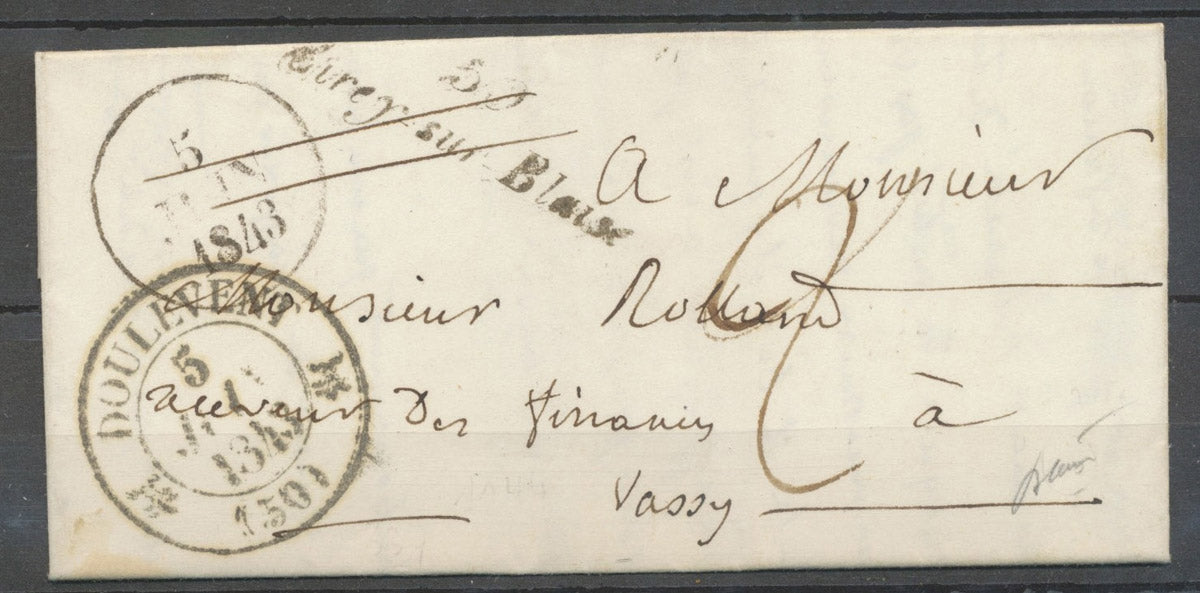 50
Cirey-sur-Blaise
5
JUIN
1843
A Monsieur
Monsieur Rolland
receveur Des finances à
Vassy
DOULEVENT
5
JUIN
1843
(50)
2